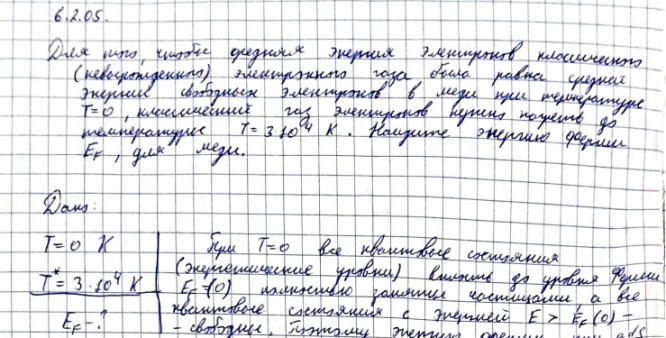 6.2.05.
Для того, чтобы средняя энергия электронов классического
(невырожденного) электронного газа была равна средней
энергии свободных электронов в меди при температуре
T=0, классический газ электронов нужно нагреть до
температуры T = 3·10⁴ К. Найдите энергию Ферми
E_F, для меди.
Дано:
T=0 К
T*=3·10⁴ К
E_F-?
При T=0 все квантовые состояния
(энергетические уровни) вплоть до уровня Ферми
E_F(0) полностью заняты частицами, а все
квантовые состояния с энергией E > E_F(0) -
- свободны. Поэтому энергия